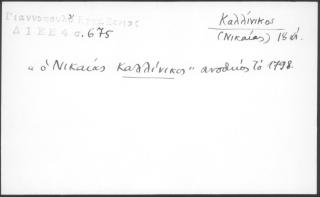 Γιαννοπούλ
ΔΙΕΕ 4 σ. 675
Καλλίνικος
(Νικαίας) 18 αἰ.
"ὁ Νικαίας Καλλίνικος" τὸ 1798.